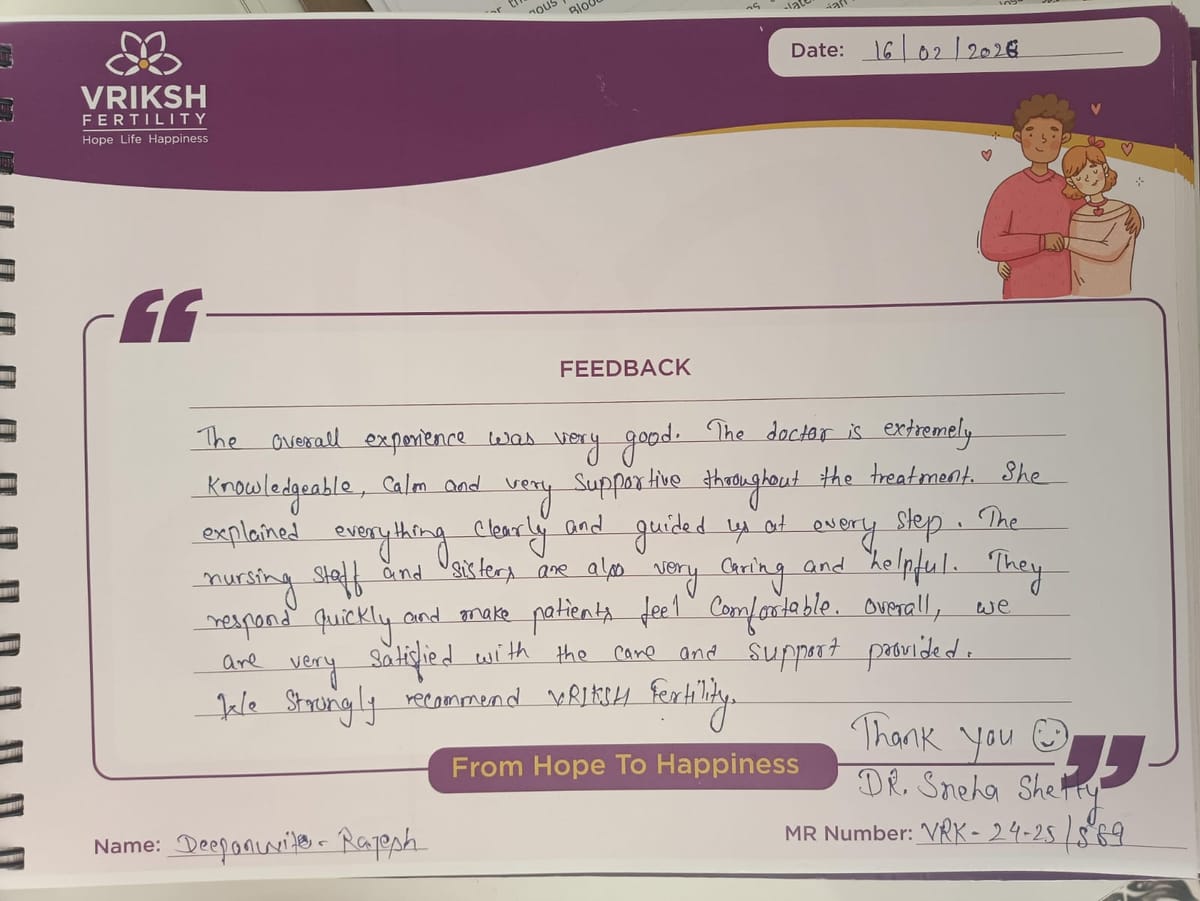 VRIKSH
FERTILITY
Hope Life Happiness
Date: 16/02/2026
FEEDBACK
The overall experience was very good. The doctor is extremely
Knowledgeable, Calm and very Supportive throughout the treatment. She
explained everything Clearly and guided us at every step. The
nursing Staff and Sisters are also very Caring and helpful. They
respond quickly and make patients feel Comfortable. Overall, we
are very Satisfied with the care and support provided.
We Strongly recommend VRIKSH Fertility.
Thank you
From Hope To Happiness
DR. Sneha Shetty
Name: Deepanwita - Rajesh
MR Number: VRK-24-25/569